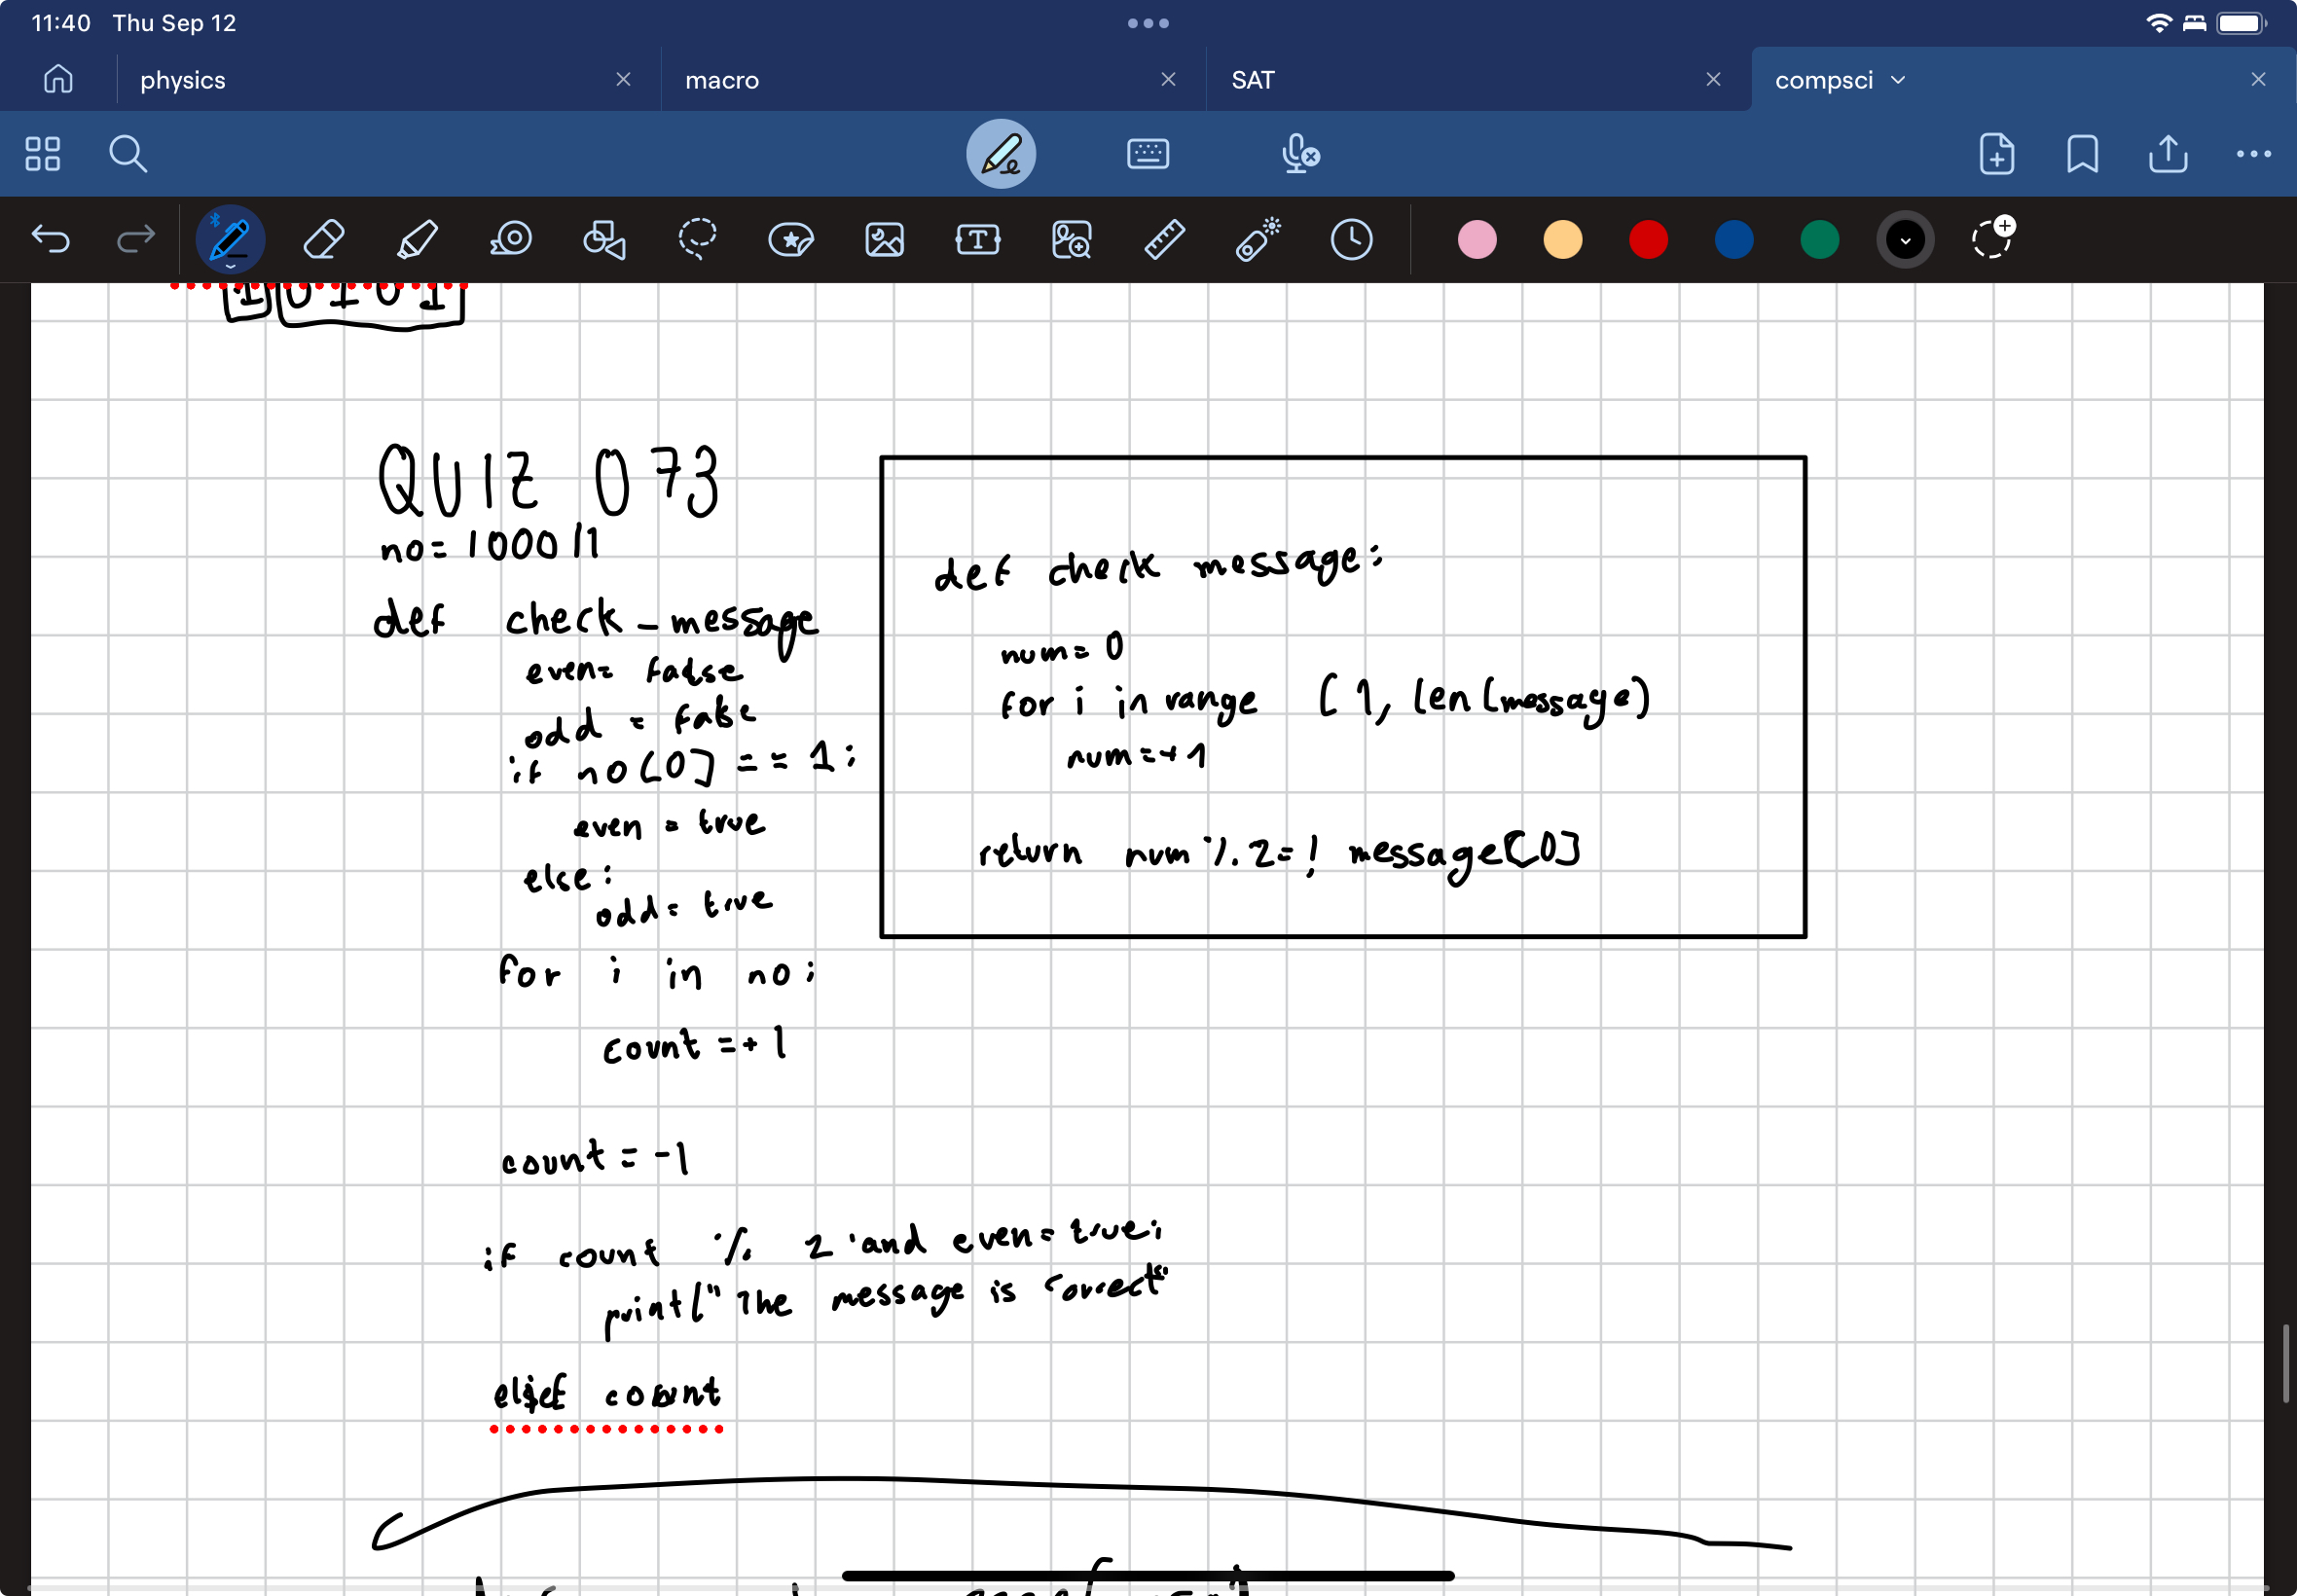 11:40 Thu Sep 12
physics macro SAT compsci
QUIZ 073
no= 1000 11
def check_message
even= false
odd = false
if no[0] == 1:
even = true
else:
odd= true
for i in no:
count =+ 1
count = -1
if count % 2 and even= true:
print("The message is correct"
elif count
def check message:
num= 0
for i in range (1, len(message)
num=+1
return num % 2 =! message[0]